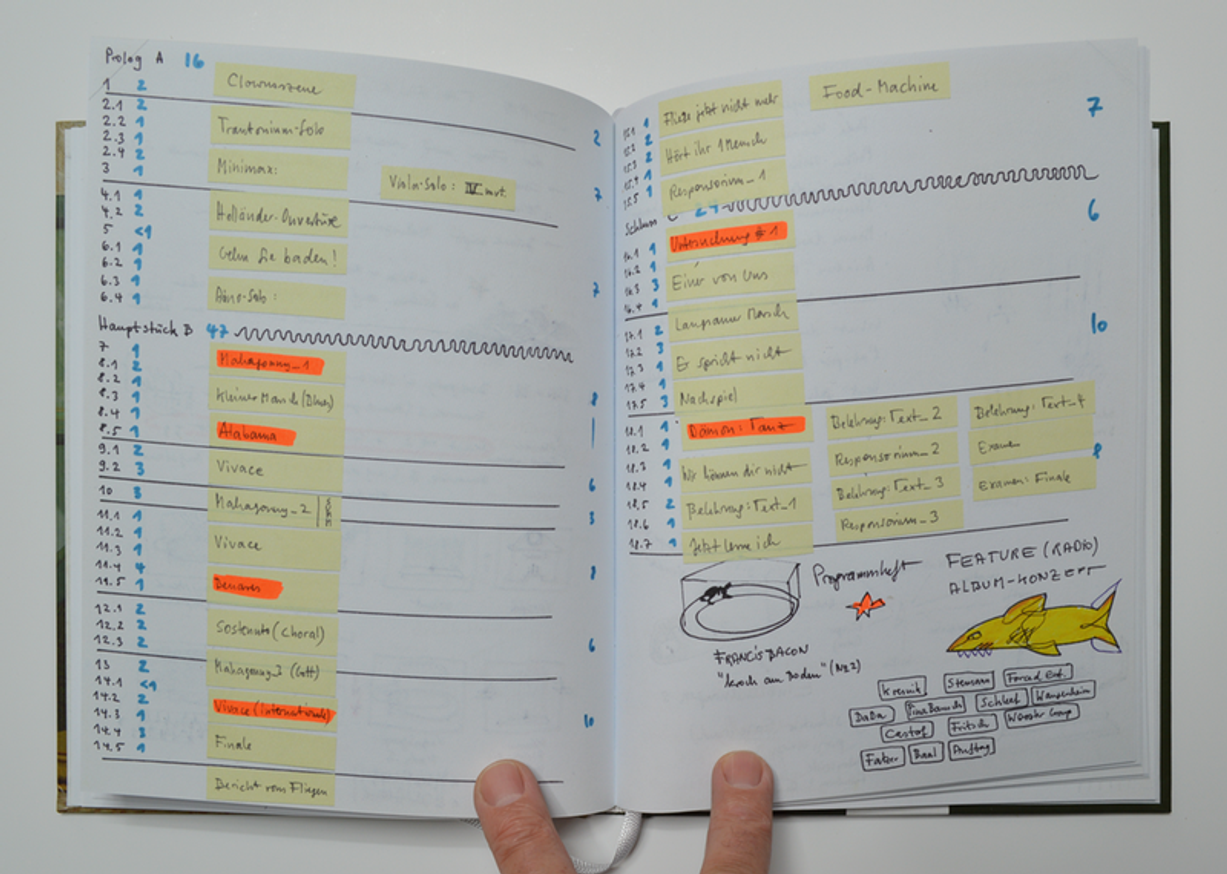 Prolog A 16
1 2
Clownszene
2.1 2
2.2 1
Trautonium-Solo
2.3 1
2.4 2
3 1
Minimax:
Viola-Solo: IV
7
4.1 1
4.2 2
Holländer-Ouvertüre
5 <1
6.1 1
Gehn Sie baden!
6.2 1
6.3 1
7
6.4 1
2
Hauptstück B 47
7 1
Mahagonny_1
8.1 2
8.2 1
8.3 1
Kleiner Marsch (Blues)
8
8.4 1
8.5 1
Alabama
9.1 2
9.2 3
Vivace
6
10 3
Mahagonny_2
3
11.1 1
11.2 1
Vivace
11.3 1
11.4 4
8
11.5 1
Benares
12.1 2
12.2 2
Sostenuto (Choral)
12.3 2
6
13 2
Mahagonny_3 (Gott)
14.1 <1
14.2 2
Vivace (Internationale)
14.3 1
10
14.4 3
Finale
14.5 1
Bericht vom Fliegen
Fliege jetzt nicht mehr
Food-Machine
7
15.1 1
15.2 2
Hört ihr 1 Mensch
15.3 2
15.4 1
Responsorium_1
15.5 1
Schluss C 24
6
16.1 1
Untersuchung #1
16.2 1
16.3 3
Einer von uns
16.4 1
Langsamer Marsch
10
17.1 2
17.2 3
Er spricht nicht
17.3 1
17.4 1
17.5 3
Nachspiel
18.1 1
Dämon: Tanz
Belehrung: Text_2
Belehrung: Text_4
18.2 1
Responsorium_2
Examen
8
18.3 1
Wir können dir nicht
18.4 1
Belehrung: Text_3
Examen: Finale
18.5 2
Belehrung: Text_1
18.6 1
Responsorium_3
18.7 1
Jetzt lerne ich
Programmheft
FEATURE (RADIO)
ALBUM-KONZEPT
FRANCIS BACON
"kroch am Boden" (Nr. 2)
Kresnik
Stemann
Forced Ent.
DaDa
Pina Bausch
Schleef
Wangenheim
Castorf
Fritsch
Wooster Group
Fatzer
Baal
Auftrag